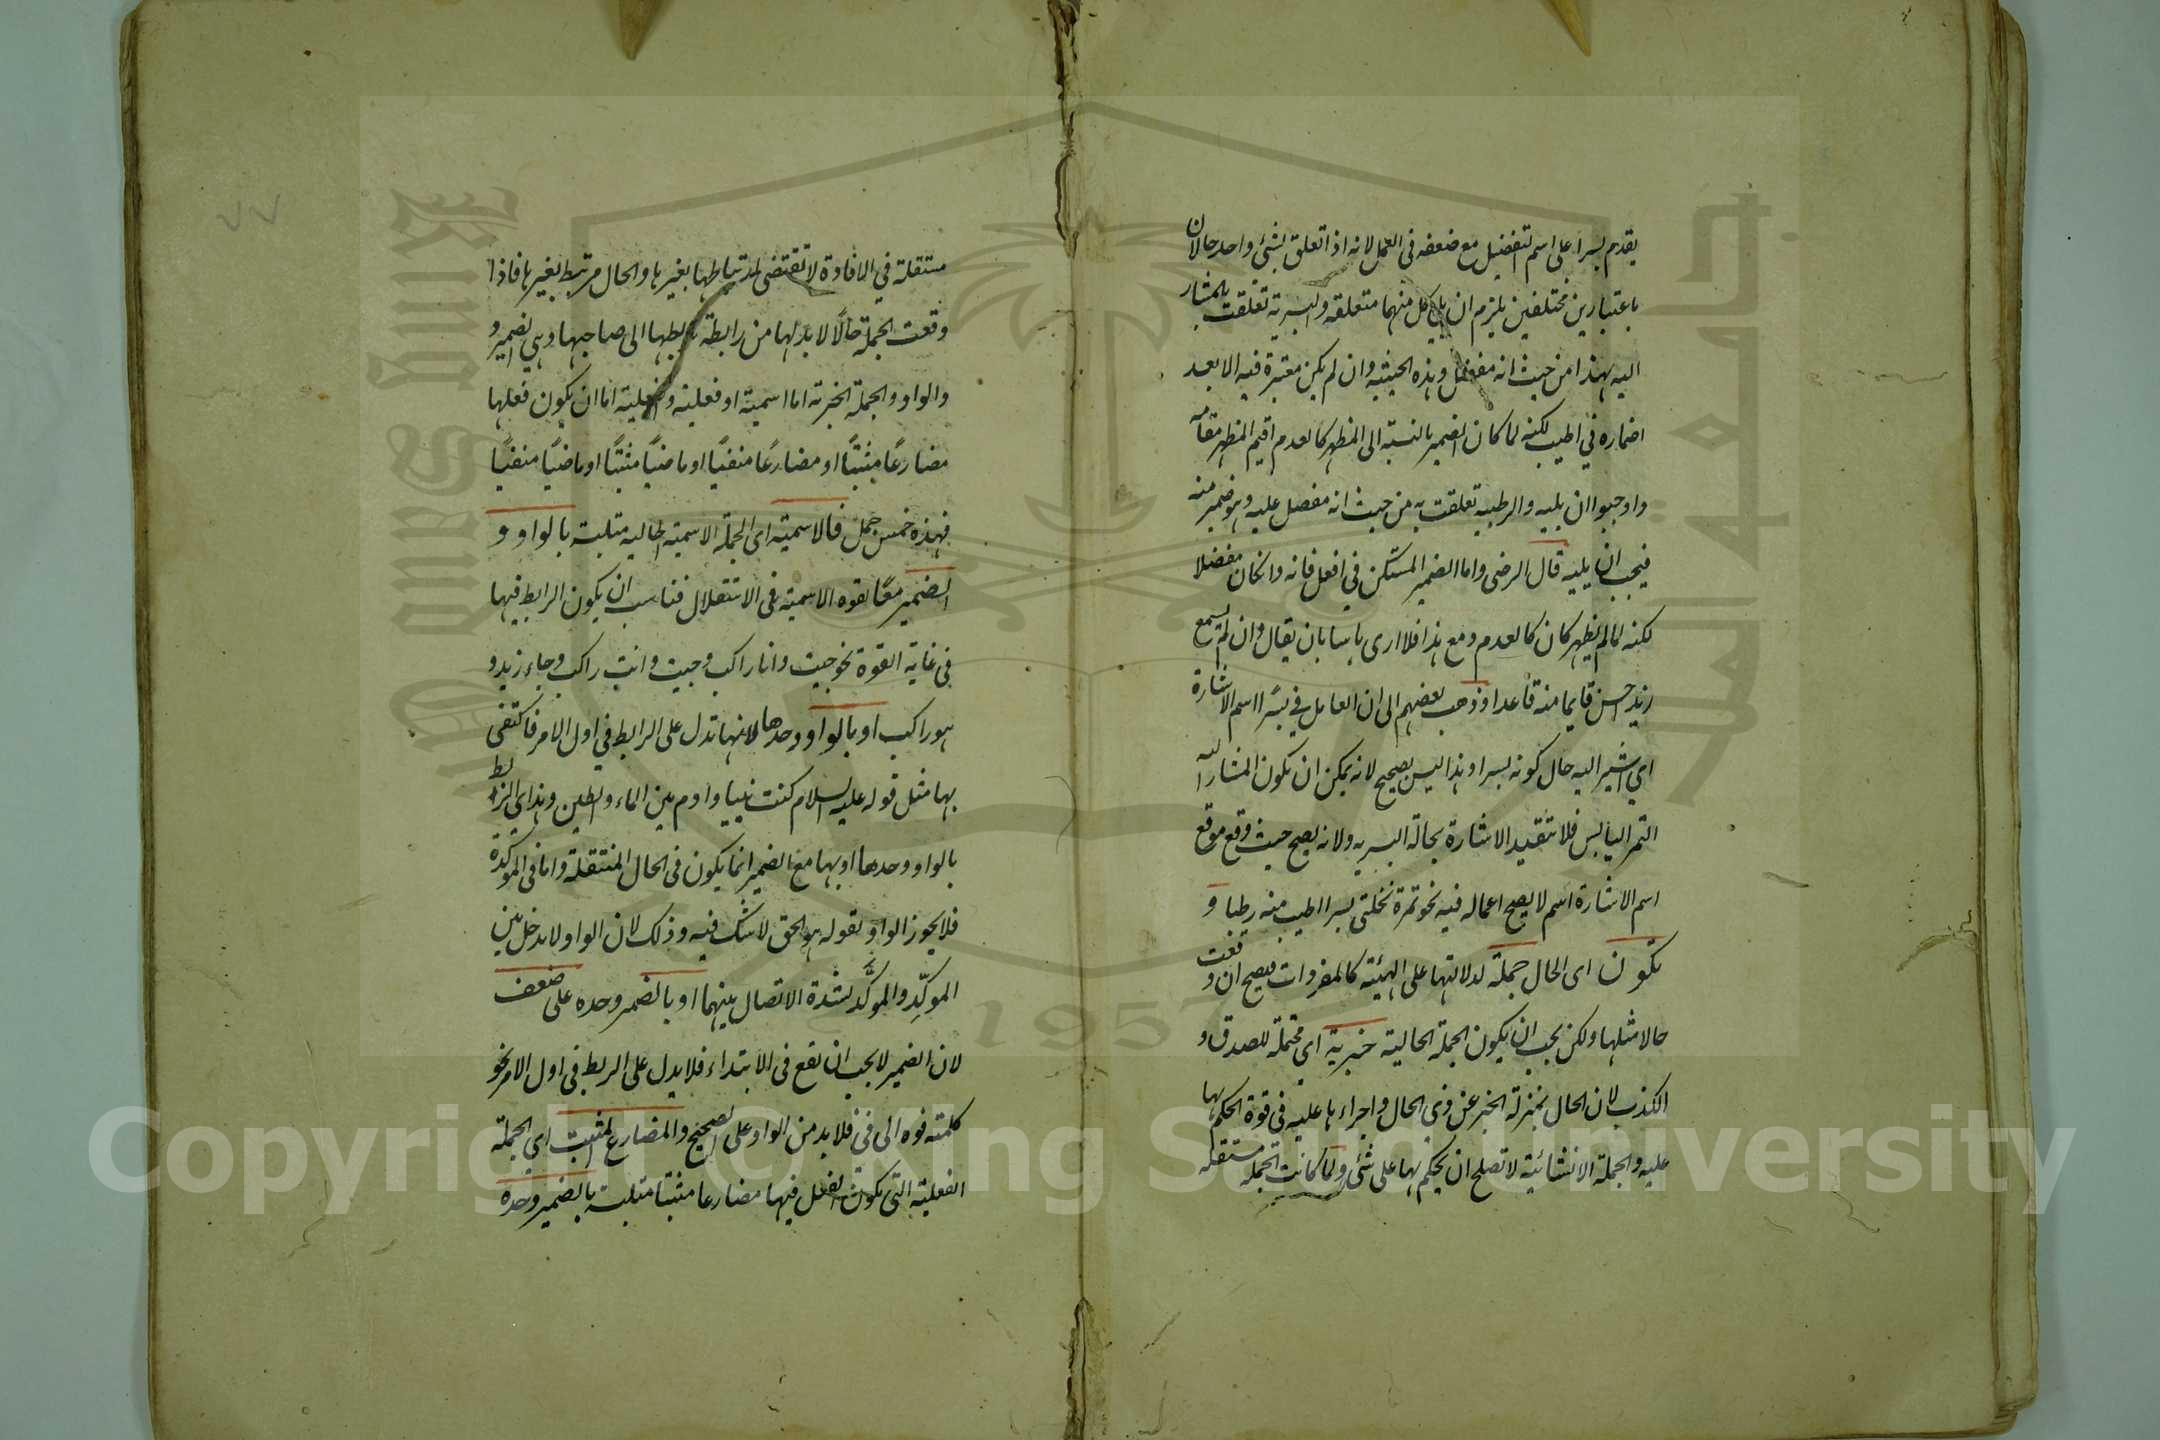 يقدم بسرا على اسم التفضيل مع ضعفه في العمل لانه اذا تعلق بشئ واحد حالان
باعتبارين مختلفين يلزم ان يلي كل منهما متعلقه والبسرية تعلقت بالمشار
اليه بهذا من حيث انه مفضل وهذه الحيثية وان لم يكن معتبرة فيه الا بعد
اضماره في اطيب لكنه لما كان الضمير بالنسبة الى المظهر كالعدم اقيم المظهر مقامه
واوجبوا ان يليه والرطبية تعلقت به من حيث انه مفضل عليه وهو ضمير منه
فيجب ان يليه قال الرضى واما الضمير المستكن في افعل فانه وانكان مفضلا
لكنه لما لم يظهر كان كالعدم ومع هذا فلا ارى باسا بان يقال وان لم يسمع
زيد احسن قايما منه قاعدا وذهب بعضهم الى ان العامل في بسرا اسم الاشارة
اي اشير اليه حال كونه بسرا وهذا ليس بصحيح لانه يمكن ان يكون المشار اليه
التمر اليابس فلا تتقيد الاشارة بحالة البسرية ولانه يصح حيث وقع موقع
اسم الاشارة اسم لا يصح اعماله فيه نحو تمرة نخلتي بسرا اطيب منه رطبا و
تكون اى الحال جملة لدلالتها على الهيئة كالمفردات فيصح ان وقعت
حالا مثلها ولكن يجب ان يكون الجملة الحالية خبرية اى محتملة للصدق و
الكذب لان الحال بمنزلة الخبر عن ذى الحال واجراءها عليه في قوة الحكم بها
عليه والجملة الانشائية لا تصلح ان يحكم بها على شئ ولما كانت الجملة مستقلة
مستقلة في الافادة لا تقتضى ارتباطها بغيرها والحال مرتبط بغيرها فاذا
وقعت الجملة حالًا لا بد لها من رابطة تربطها الى صاحبها وهي الضمير و
والواو والجملة الخبرية اما اسمية او فعلية والفعلية اما ان يكون فعلها
مضارعًا مثبتًا او مضارعًا منفيًا او ماضيًا مثبتًا او ماضيًا منفيًا
فهذه خمس جمل فالاسمية اى الجملة الاسمية الحالية متلبسة بالواو و
الضمير معًا لقوة الاسمية في الاستقلال فناسب ان يكون الرابط فيها
في غاية القوة نحو جيت وانا راكب وجيت وانت راكب وجاء زيد و
هو راكب او بالواو وحدها لانها تدل على الرابط في اول الامر فاكتفى
بها مثل قوله عليه السلام كنت نبيا وادم بين الماء والطين وهذا اي الرابط
بالواو وحدها او بها مع الضمير انما يكون في الحال المنتقلة واما في المؤكدة
فلا يجوز الواو تقول هو الحق لا شك فيه وذلك لان الواو لا يدخل بين
الموكِّد والموكَّد لشدة الاتصال بينهما او بالضمير وحده على ضعف
لان الضمير لا يجب ان تقع في الابتداء فلا يدل على الربط في اول الامر نحو
كلمته فوه الى في فلا بد من الواو على الصحيح والمضارع المثبت اى الجملة
الفعلية التي يكون الفعل فيها مضارعا مثبتا متلبسة بالضمير وحده
Copyright © King Saud University
1957